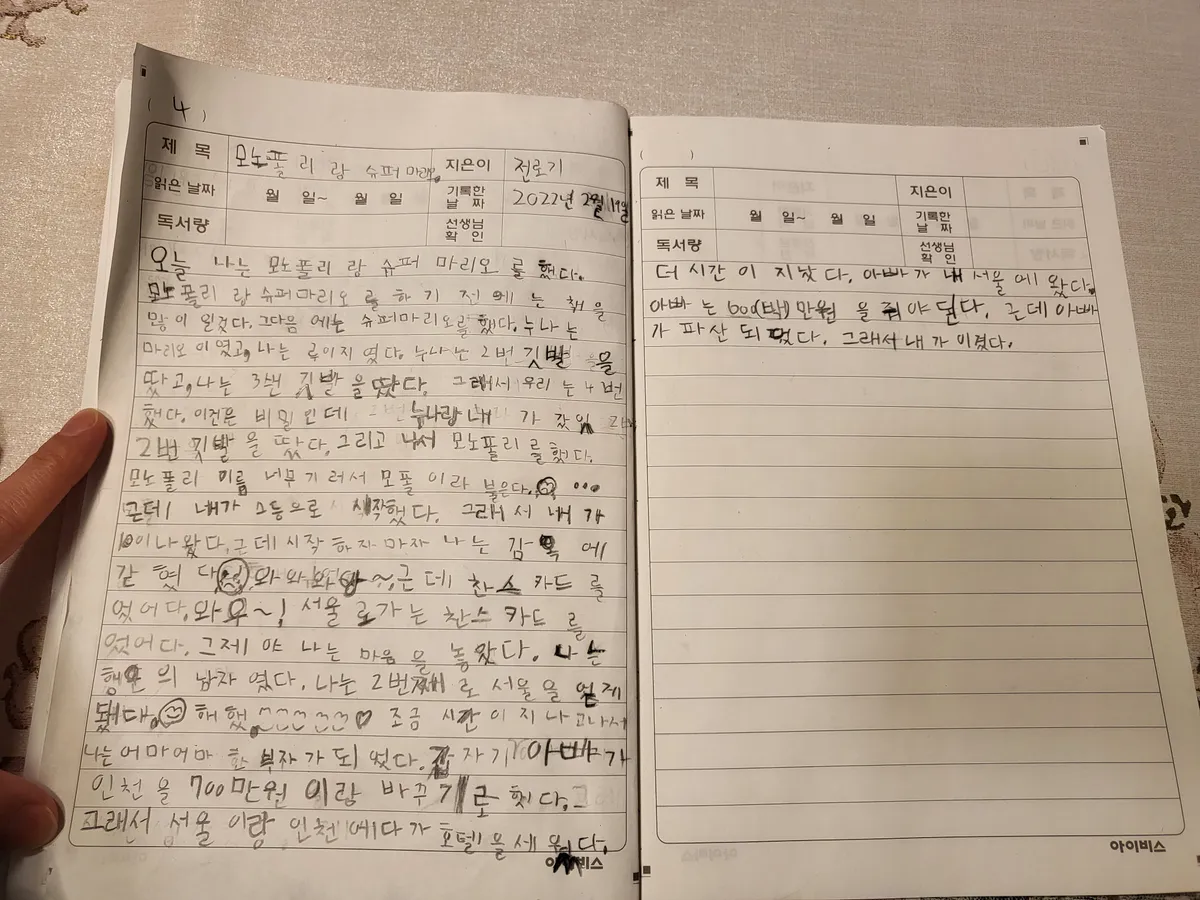 ( 4 )
제 목 모노폴리 랑 슈퍼 마리오 지은이 전로기
읽은 날짜 월 일~ 월 일 기록한 날 짜 2022년 2월 19일
독서량 선생님 확 인
오늘 나는 모노폴리 랑 슈퍼 마리오 를 했다.
모노폴리 랑 슈퍼마리오 를 하 기 전 에 는 책 을
많이 읽겄다. 그다음 에는 슈퍼마리오를 했다. 누나는
마리오 이 였고, 나는 루이지 였다. 누나 는 2번 깃발 을
땄고, 나는 3번 깃발 을 땄다. 그래서 우리 는 4 번
했다. 이건은 비밀 인 데 누나랑 내 가 같이
2번 깃발 을 땄다. 그리고 나서 모노폴리 를 했다.
모노폴리 이름 너무 기 러서 모폴 이라 불은다. ...
근데 내가 으로 시작했다. 그래 서 내 가
10이 나 왔 다. 근 데 시 작 하 자 마 자 나 는 감 옥 에
같 혔 다 와 와 와 ~, 근 데 찬 스 카 드 를
었 어 다. 와 우 ~ ! 서울 로 가 는 찬 스 카 드 를
었 어 다. 그 제 야 나 는 마 음 을 놓 았 다. 나 는
행운 의 남 자 였 다. 나 는 2 번 째 로 서울 을 얻 게
됐 다. 해 했. 조 금 시 간 이 지 나 고 나 서
나는 어 마 어 마 한 부자 가 되 었 다. 갑 자 기 아빠 가
인 천 을 700만 원 이 랑 바 꾸 기 로 했 다. 그
그래서 서울 이랑 인천 에 다 가 호텔 을 세 웠 다.
아이비스
( )
제 목 지은이
읽은 날짜 월 일~ 월 일 기록한 날 짜
독서량 선생님 확 인
더 시간 이 지 났 다. 아빠 가 내 서울 에 왔 다.
아빠 는 600(백) 만원 을 줘 야 된 다. 근 데 아빠
가 파 산 되 었 다. 그래서 내 가 이겼 다.
아이비스